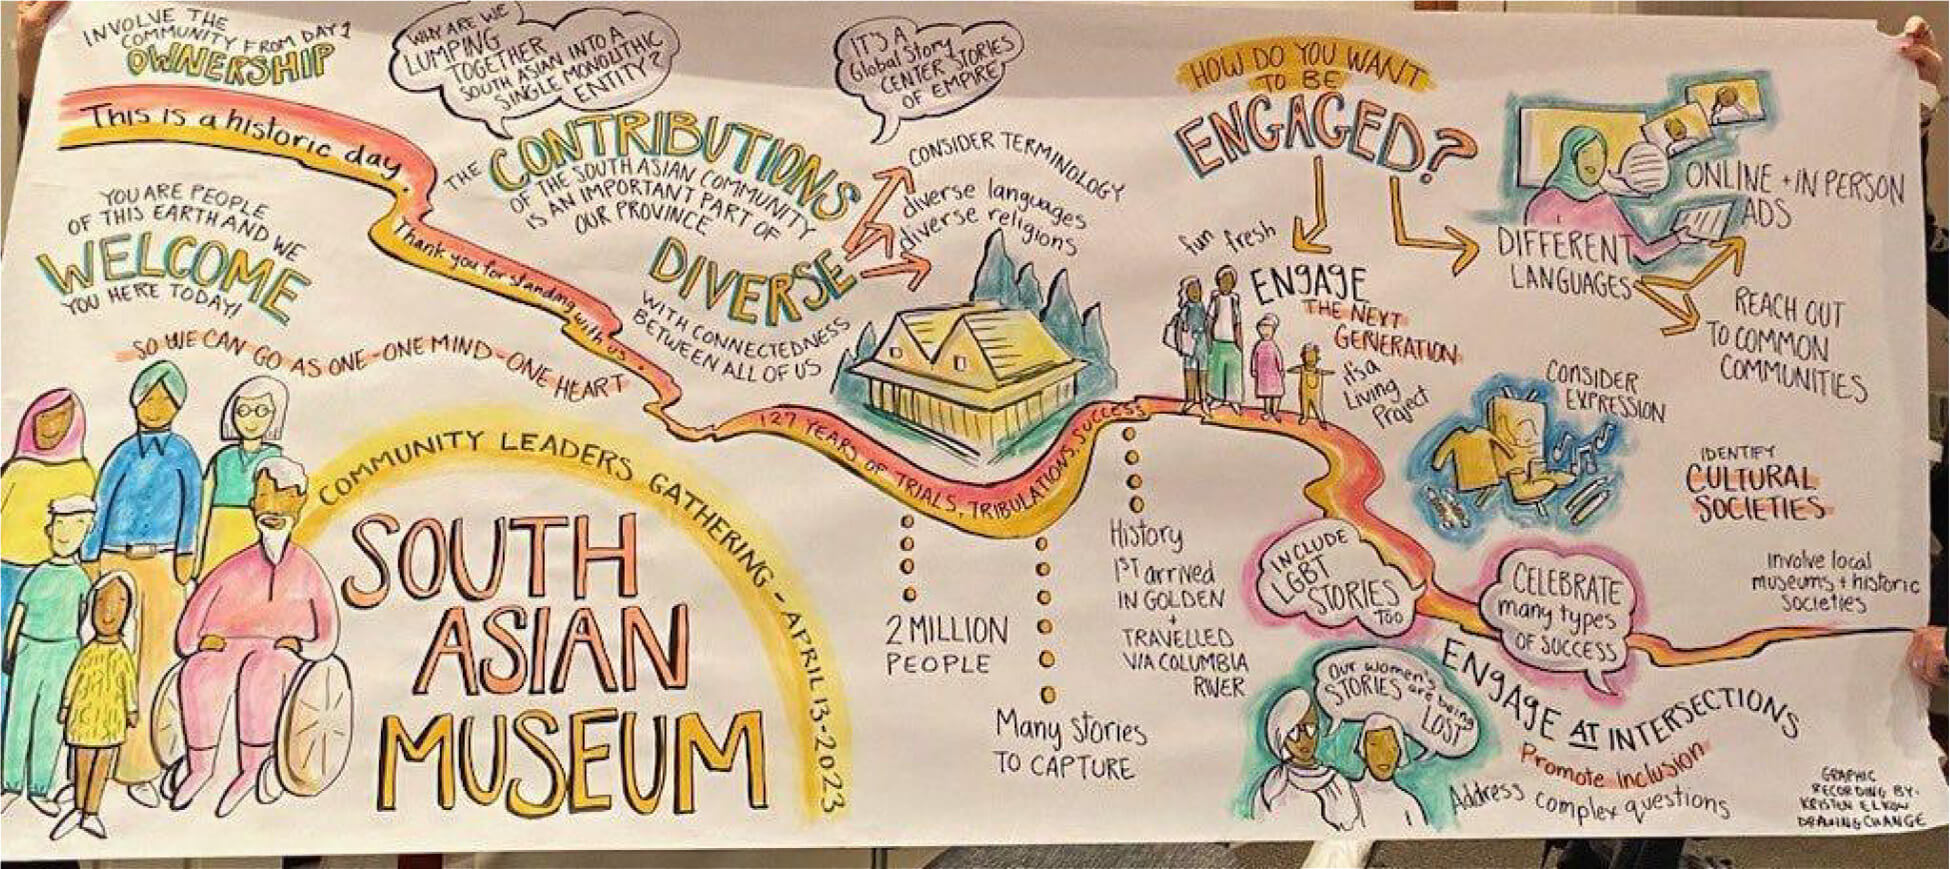 INVOLVE THE
COMMUNITY FROM DAY 1
OWNERSHIP
This is a historic day.
Thank you for standing with us.
YOU ARE PEOPLE
OF THIS EARTH AND WE
WELCOME
YOU HERE TODAY!
SO WE CAN GO AS ONE - ONE MIND - ONE HEART
COMMUNITY LEADERS GATHERING - APRIL 13 - 2023
SOUTH
ASIAN
MUSEUM
WHY ARE WE
LUMPING
TOGETHER
SOUTH ASIAN INTO A
SINGLE MONOLITHIC
ENTITY?
THE CONTRIBUTIONS
OF THE SOUTH ASIAN COMMUNITY
IS AN IMPORTANT PART OF
OUR PROVINCE
DIVERSE
WITH CONNECTEDNESS
BETWEEN ALL OF US
IT'S A
Global Story
CENTER STORIES
OF EMPIRE
CONSIDER TERMINOLOGY
diverse languages
diverse religions
127 YEARS OF TRIALS, TRIBULATIONS, SUCCESS
2 MILLION
PEOPLE
Many stories
TO CAPTURE
History
1ST arrived
IN GOLDEN
+
TRAVELLED
VIA COLUMBIA
RIVER
HOW DO YOU WANT
TO BE
ENGAGED?
fun fresh
ENGAGE
THE NEXT
GENERATION
it's a
Living
Project
DIFFERENT
LANGUAGES
ONLINE + IN PERSON
ADS
REACH OUT
TO COMMON
COMMUNITIES
CONSIDER
EXPRESSION
IDENTIFY
CULTURAL
SOCIETIES
involve local
museums + historic
societies
INCLUDE
LGBT
STORIES
TOO
CELEBRATE
many types
OF SUCCESS
Our women's
STORIES are being
LOST
ENGAGE AT INTERSECTIONS
Promote inclusion
Address complex questions
GRAPHIC
RECORDING BY:
KRISTEN ELKOW
DRAWING CHANGE